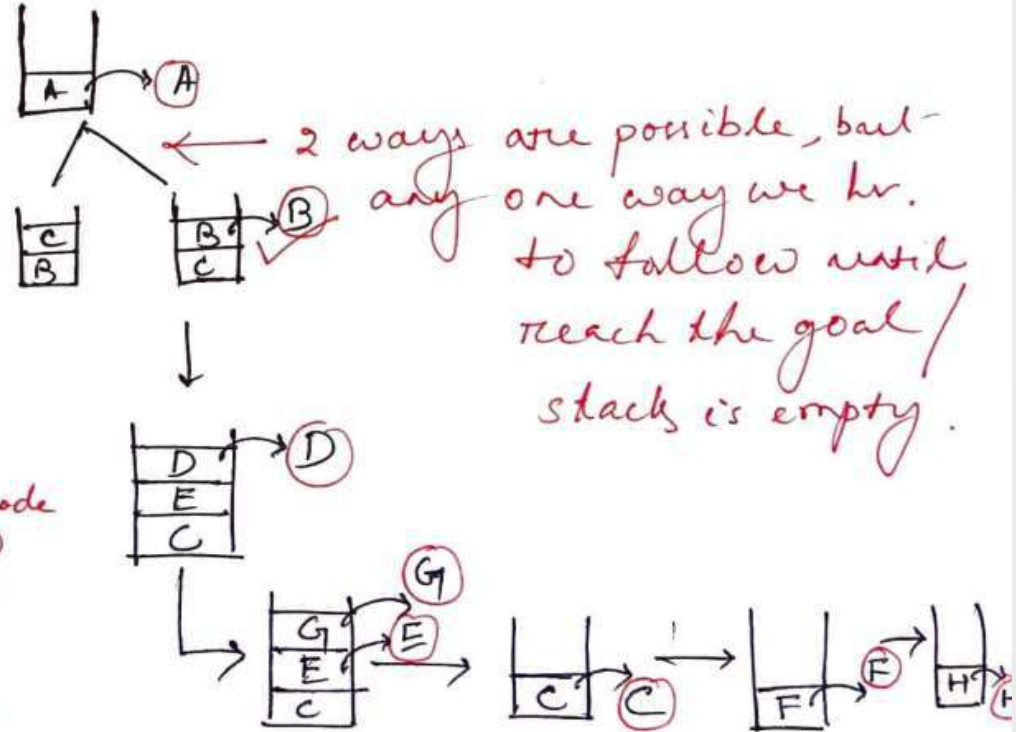 A A
2 ways are possible, but
any one way we hv.
to follow until
reach the goal/
stack is empty.
C B B
B C
D D
E
C
ode
G
G E
E
C
C C
F F
H H